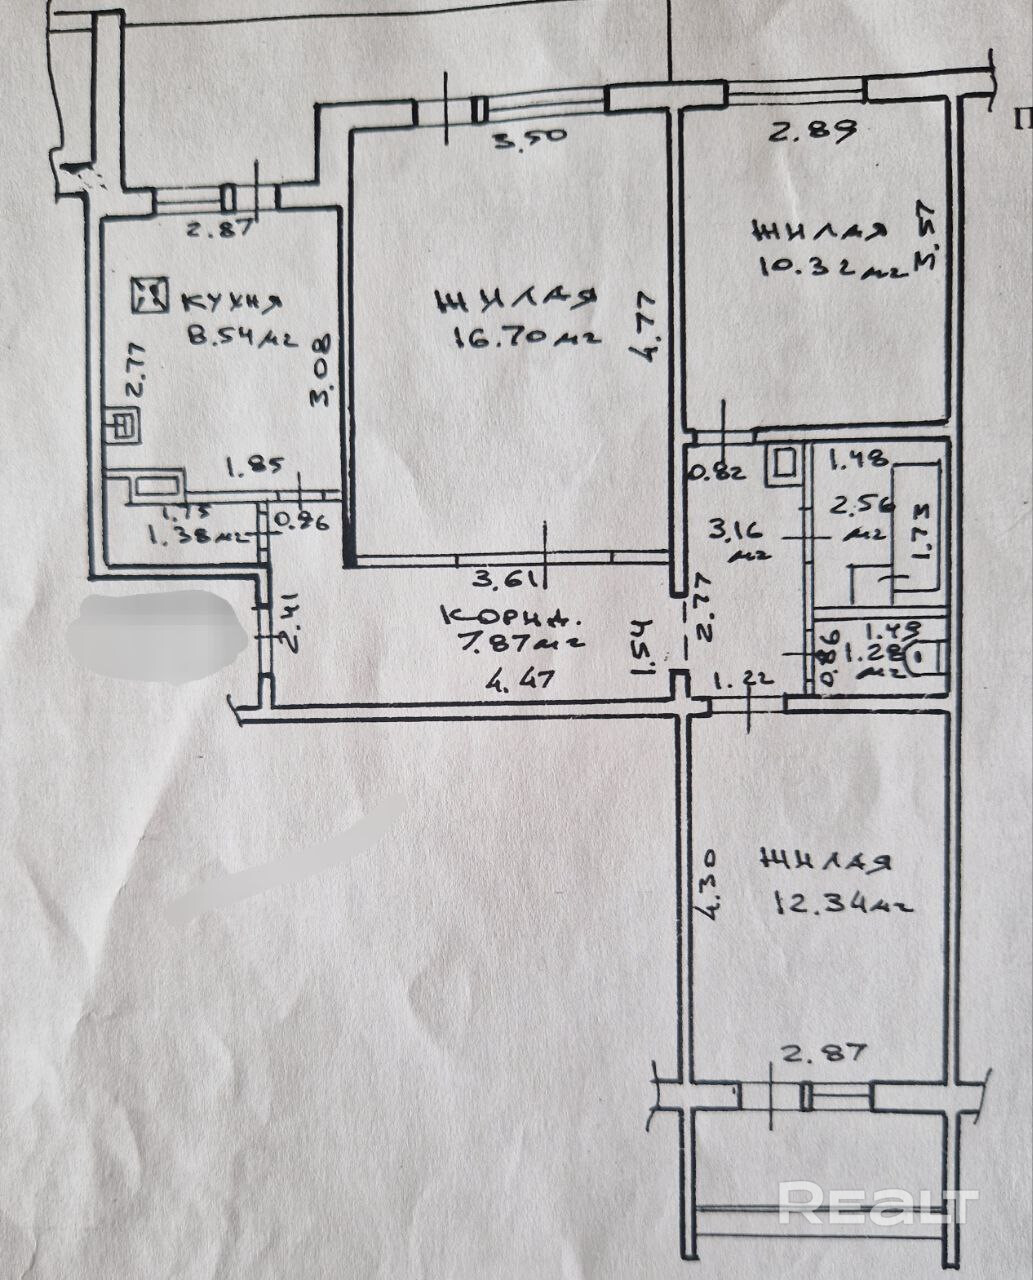 П
3.50
2.89
2.87
ЖИЛАЯ
10.32 м2
3.57
КУХНЯ
8.54 м2
2.77
3.08
ЖИЛАЯ
16.70 м2
4.77
1.85
0.82
1.48
2.56
м2
1.73
1.75
1.38 м2
0.86
3.16
м2
3.61
2.77
КОРИД.
7.87 м2
2.41
1.54
4.47
1.22
0.86
1.49
1.28
м2
4.30
ЖИЛАЯ
12.34 м2
2.87
REALT